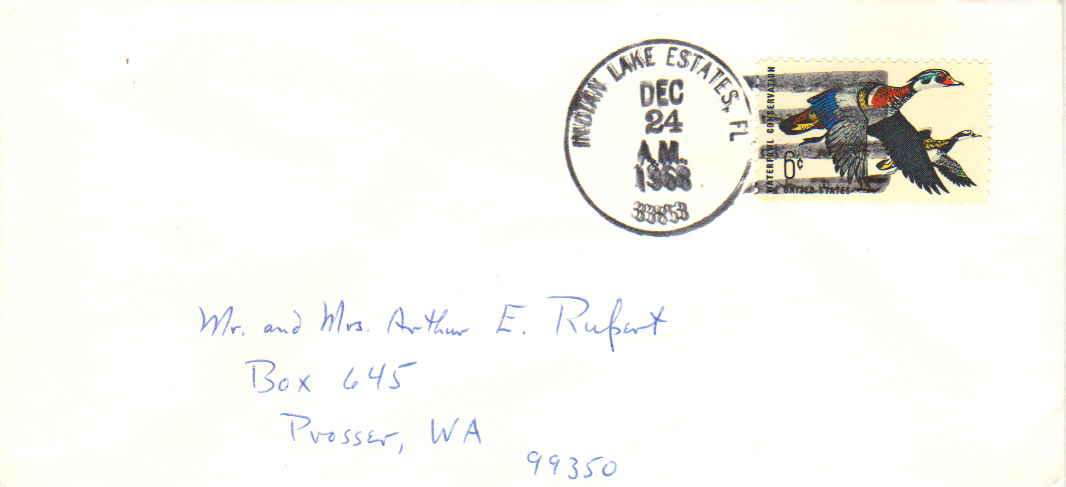 INDIAN LAKE ESTATES, FL
DEC
24
A.M.
1968
33853
WATERFOWL CONSERVATION
6¢
UNITED STATES
Mr. and Mrs. Arthur E. Rupert
Box 645
Prosser, WA
99350